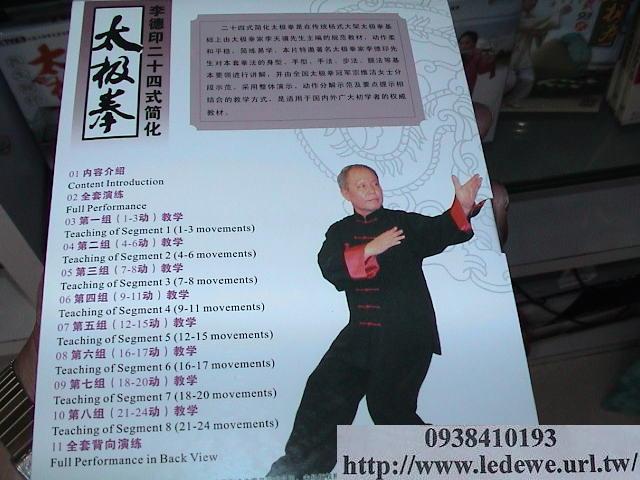 李德印二十四式简化
太极拳
二十四式简化太极拳是在传统杨式大架太极拳基
础上由太极拳家李天骥先生主编的规范教材，动作柔
和平稳，简练易学。本片特邀著名太极拳家李德印先
生对本套拳法的身型、手型、手法、步法、腿法等基
本要领进行讲解，并由全国太极拳冠军宗维洁女士分
段示范，采用整体演示、动作分解示范及要点提示相
结合的教学方式，是适用于国内外广大初学者的权威
教材。
01 内容介紹
Content Introduction
02 全套演练
Full Performance
03 第一组（1-3动）教学
Teaching of Segment 1 (1-3 movements)
04 第二组（4-6动）教学
Teaching of Segment 2 (4-6 movements)
05 第三组（7-8动）教学
Teaching of Segment 3 (7-8 movements)
06 第四组（9-11动）教学
Teaching of Segment 4 (9-11 movements)
07 第五组（12-15动）教学
Teaching of Segment 5 (12-15 movements)
08 第六组（16-17动）教学
Teaching of Segment 6 (16-17 movements)
09 第七组（18-20动）教学
Teaching of Segment 7 (18-20 movements)
10 第八组（21-24动）教学
Teaching of Segment 8 (21-24 movements)
11 全套背向演练
Full Performance in Back View
0938410193
http://www.ledewe.url.tw/